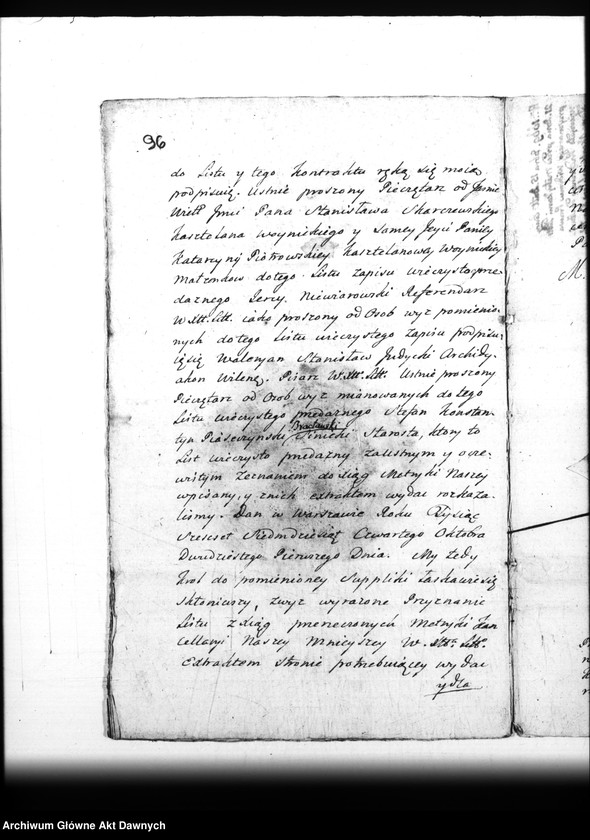 96
do Listu y tego kontraktu ręką się moią
podpisuię. Ustnie proszony Pieczętarz od Jaśnie
Wiel. Jmci Pana Stanisława Skarczewskiego
Kasztelana Woynickiego y samey Jeyći Paniey
Katarzyny Piotrowskiey Kasztelanowey Woynickiey
Małżonkow do tego Listu zapisu wieczysto prze-
daznego Jerzy Niewiarowski Referendarz
W. Xtt. Litt. iako proszony od Osob wyż pomienio-
nych do tego Listu wieczystego zapisu podpisu-
ię się Waleryan Stanisław Judycki Archidy-
akon Wileńs. Pisarz W. Xtt. Litt. Ustnie proszony
Pieczętarz od Osob wyż mianowanych do tego
Listu wieczystego przedaznego Stefan Konstan-
tyn Piaseczynski Bracławski Starosta, ktory to
List wieczysto przedazny za listnym y ocze-
wistym zeznaniem do xiąg Metryki Naszey
wpisany, y z nich extraktem wydać rozkaza-
liśmy. Dan w Warszawie Roku Tysiąc
Szescset Siedmdziesiąt Czwartego Oktobra
Dwudziestego Pierwszego Dnia. My tedy
Krol do pomienioney Suppliki łaskawie się
skłoniwszy, zwyż wyrażone Przyznanie
Listu z xiąg przerzeczonych Metryki Kan
cellaryi Naszey Mnieyszey W. Xtt. Litt.
Extraktem stronie potrzebuiącey wydać
y dla
M.
Archiwum Główne Akt Dawnych